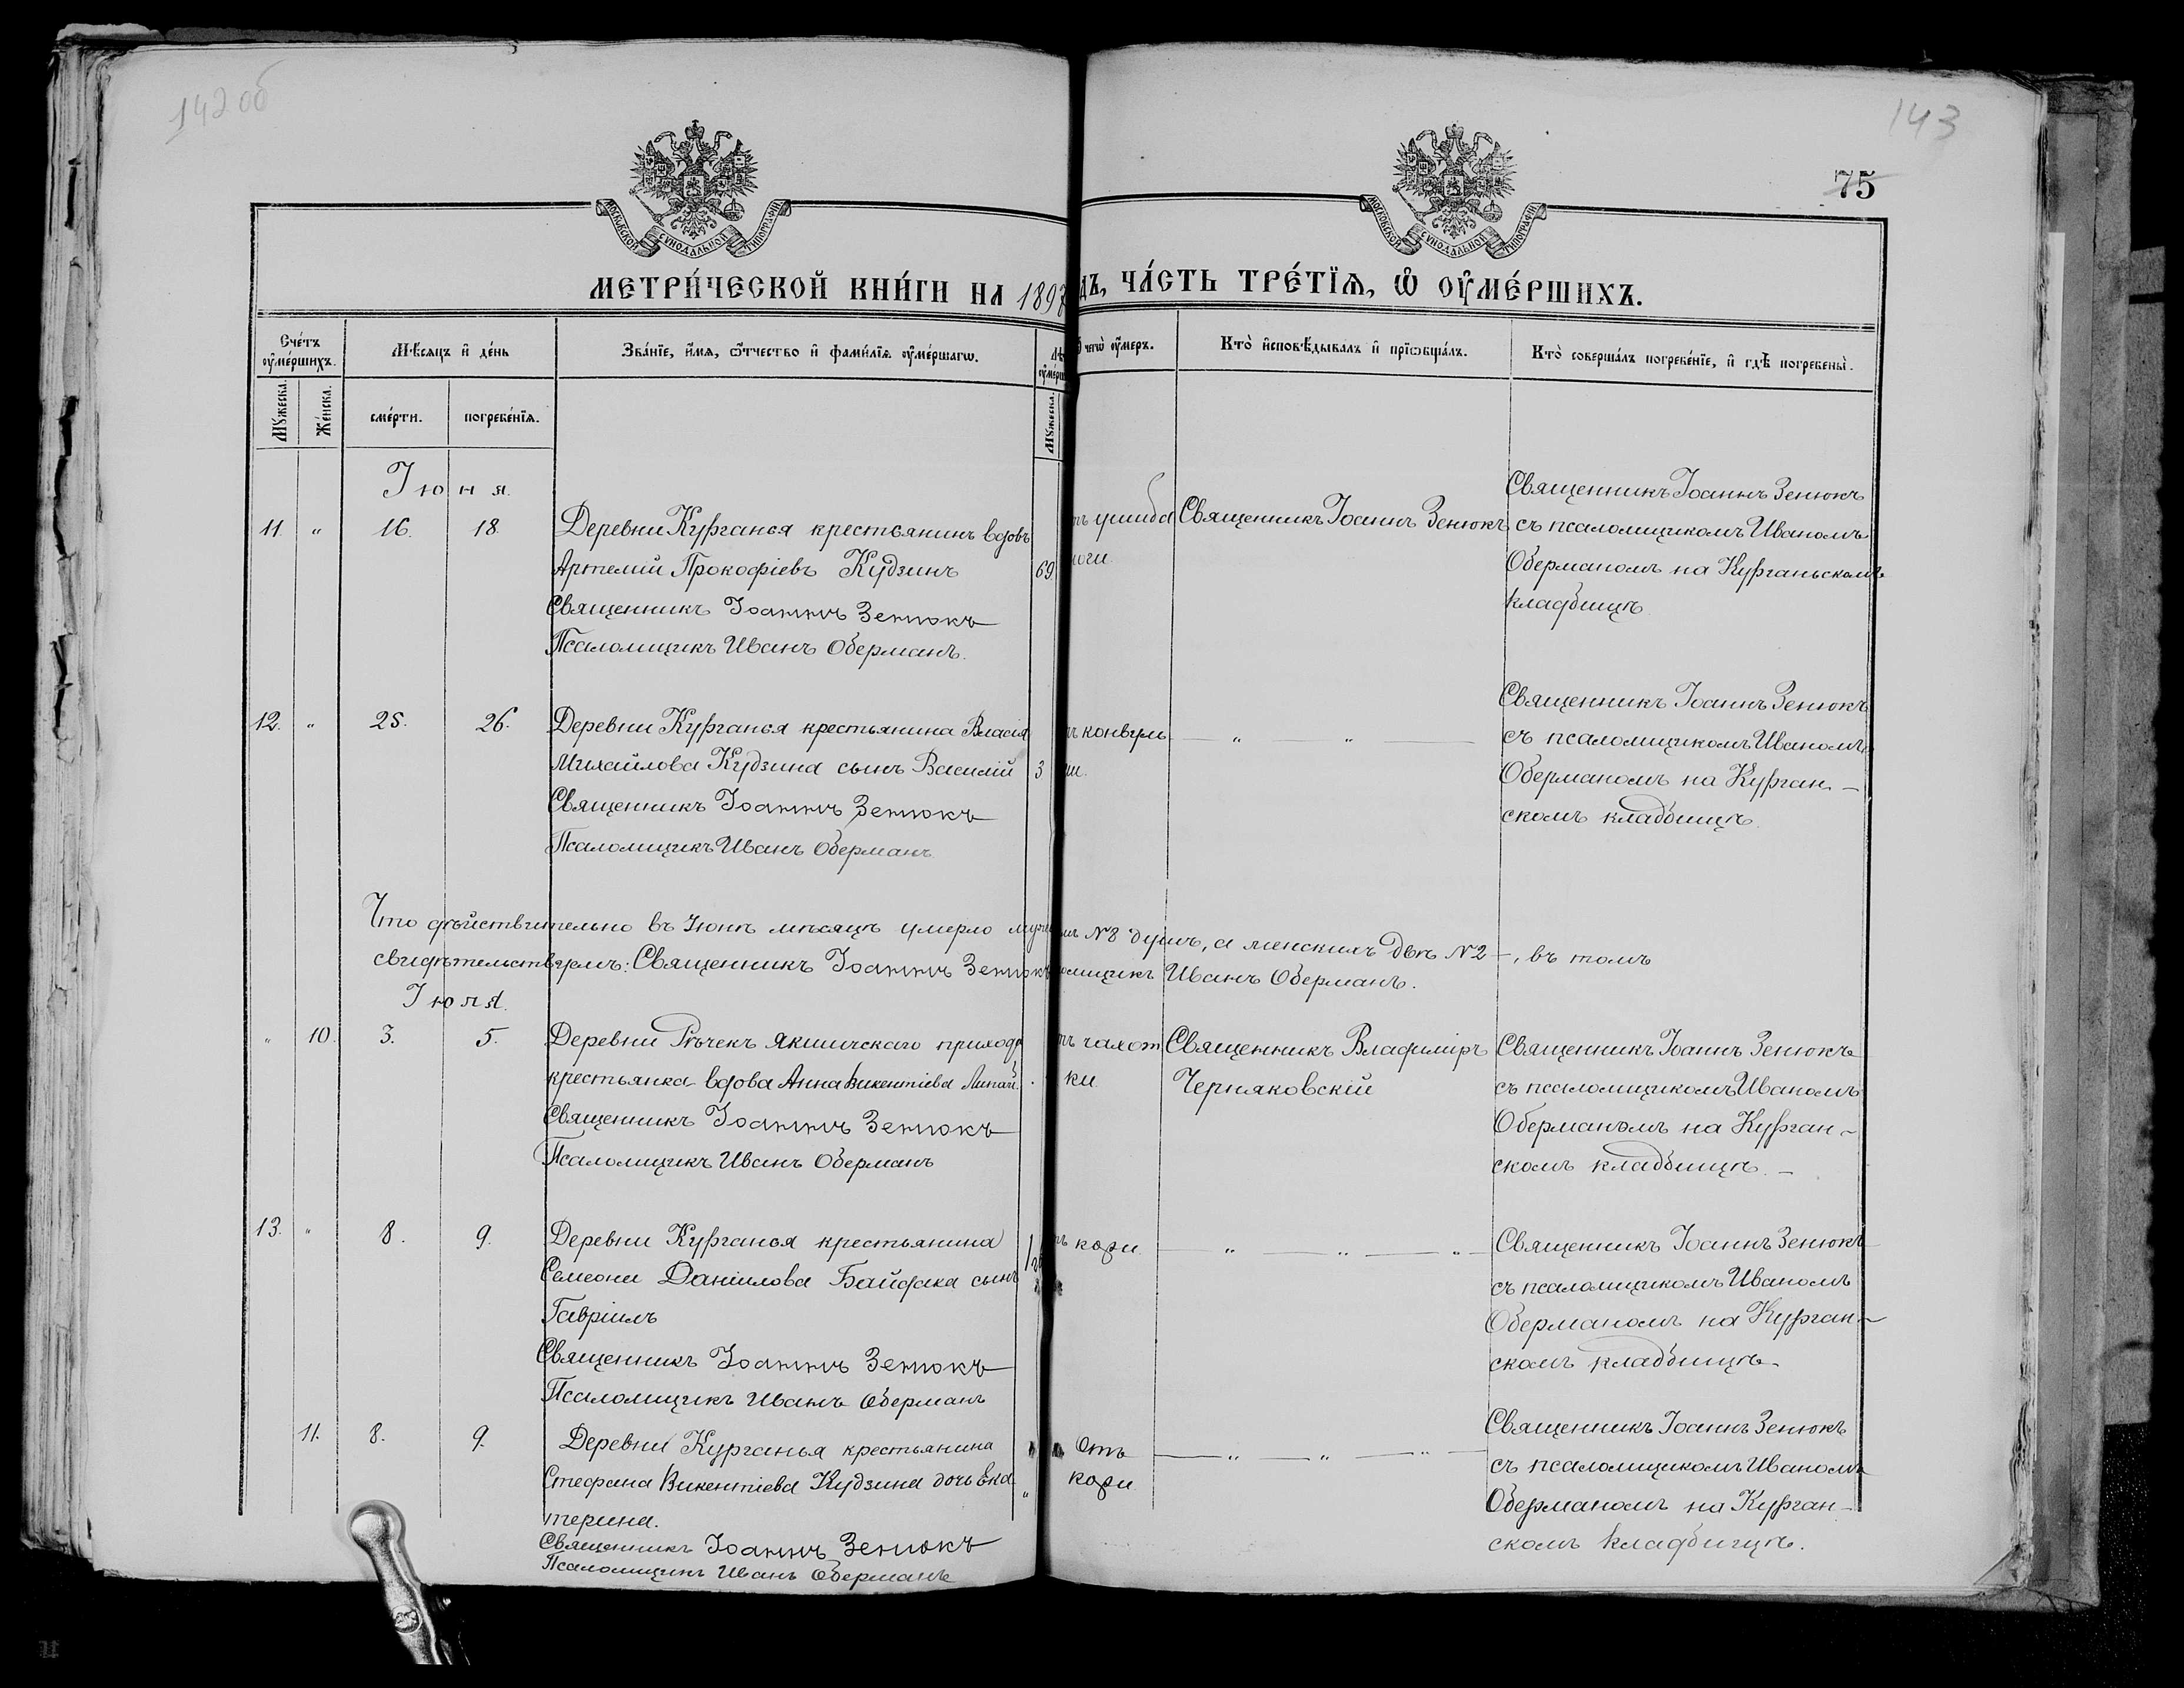 142об
143
75
МОСКОВСКОЙ СѴНОДАЛЬНОЙ ТИПОГРАФІИ
МОСКОВСКОЙ СѴНОДАЛЬНОЙ ТИПОГРАФІИ
МЕТРИ́ЧЕСКОЙ КНИ́ГИ НА 1897
ДЪ, ЧА́СТЬ ТРЕ́ТЇѦ, Ѡ ОУМЕ́РШИХЪ.
Сче́тъ оумершихъ.
Мѣсяцъ и де́нь
Зва́нїе, и́мѧ, ѻ́тчество и фами́лїѧ оуме́ршагѡ.
чегѡ оумеръ.
Кто̀ исповѣдывалъ и прїѡбща́лъ.
Кто̀ соверша́лъ погребе́нїе, и гдѣ погребены̀.
Мꙋжеска.
Же́нска.
сме́рти.
погребе́нїѧ.
Мꙋжеска.
Іюня.
11. " 16. 18. Деревни Курганья крестьянинъ вдовъ
Артемій Прокофіевъ Кудзинъ 69
Священникъ Іоаннъ Зенюкъ
Псаломщикъ Иванъ Оберманъ.
ушиба
ноги.
Священникъ Іоаннъ Зенюкъ
Священникъ Іоаннъ Зенюкъ
съ псаломщикомъ Иваномъ
Оберманомъ на Курганьскомъ
кладбищѣ.
12. " 25. 26. Деревни Курганья крестьянина Власія
Михайлова Кудзина сынъ Василій 3
Священникъ Іоаннъ Зенюкъ
Псаломщикъ Иванъ Оберманъ.
конвуль
" "
Священникъ Іоаннъ Зенюкъ
съ псаломщикомъ Иваномъ
Оберманомъ на Курган-
скомъ кладбищѣ.
Что дѣйствительно въ Іюнѣ мѣсяцѣ умерло
№8 душъ, а женскихъ двѣ №2 -, въ томъ
свидѣтельствуемъ: Священникъ Іоаннъ Зенюкъ
омщикъ Иванъ Оберманъ.
Іюля.
" 10. 3. 5. Деревни Рѣчекъ Якшичскаго прихода
крестьянка вдова Анна Викентіева
Священникъ Іоаннъ Зенюкъ
Псаломщикъ Иванъ Оберманъ
чахот
ки.
Священникъ Владиміръ
Черняковскій
Священникъ Іоаннъ Зенюкъ
съ псаломщикомъ Иваномъ
Оберманомъ на Курган-
скомъ кладбищѣ. -
13. " 8. 9. Деревни Курганья крестьянина
Семеона Даніилова Байдака сынъ
Гавріилъ
Священникъ Іоаннъ Зенюкъ
Псаломщикъ Иванъ Оберманъ
кори.
" " "
Священникъ Іоаннъ Зенюкъ
съ псаломщикомъ Иваномъ
Оберманомъ на Курган-
скомъ кладбищѣ.
11. 8. 9. Деревни Курганья крестьянина
Стефана Викентіева Кудзина дочь Ека
терина.
Священникъ Іоаннъ Зенюкъ
Псаломщикъ Иванъ Оберманъ
Отъ
кори.
" " "
Священникъ Іоаннъ Зенюкъ
съ псаломщикомъ Иваномъ
Оберманомъ на Курган-
скомъ кладбищѣ.